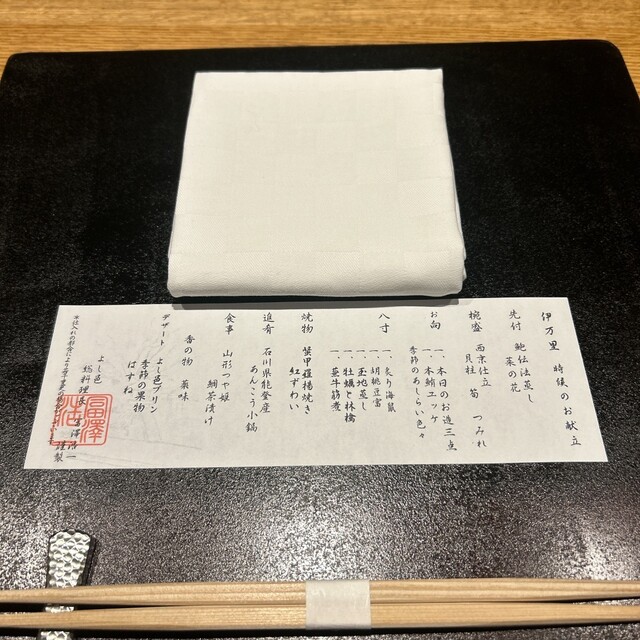 伊万里 時候のお献立
先付 鮑伝法蒸し
菜の花
椀盛 西京仕立 筍 つみれ
貝柱
お向 一、本日のお造三点
一、本鮪ユッケ
季節のあしらい色々
八寸 一、炙り海鼠
一、胡桃豆富
一、玉地蒸し
一、牡蠣と林檎
一、牛筋煮
焼物 蟹甲羅揚焼き
紅ずわい
進肴 石川県能登産
あんこう小鍋
食事 山形つや姫
鯛茶漬け
香の物 薬味
デザート よし邑プリン
季節の果物
はすね
仕入れの都合により
よし邑
総料理長 冨澤浩一
謹製
冨澤